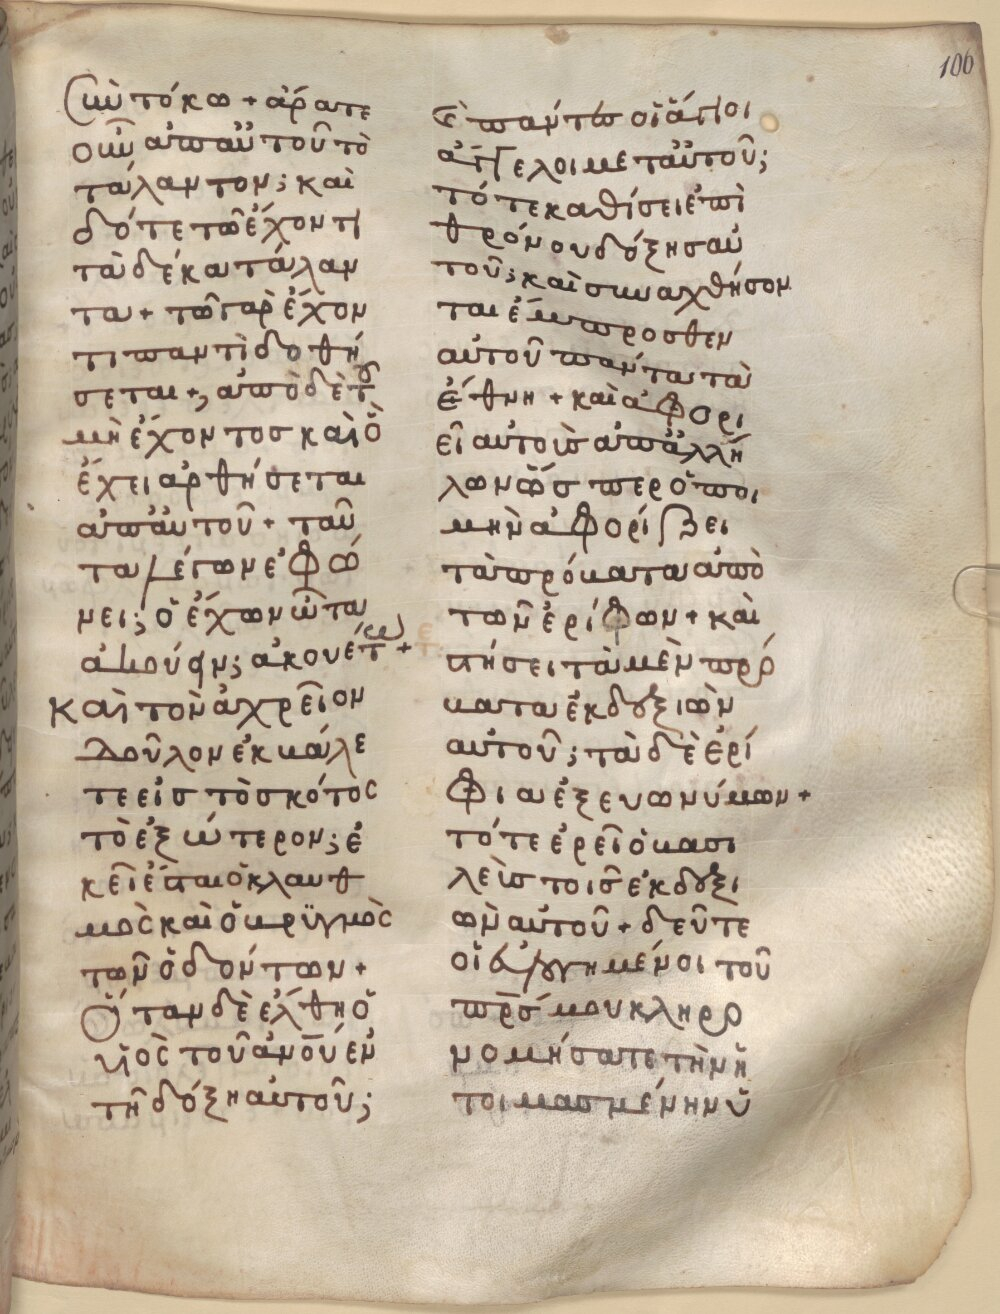 106
σὺν τόκω + ἄρατε
οὖν ἀπ αὐτοῦ τὸ
τάλαντον ; καὶ
δότε τῶ ἔχοντι
τὰ δέκα τάλαν
τα + τῶ γὰρ ἔχον
τι παντὶ δοθή
σεται + , ἀπὸ δὲ τοῦ
μὴ ἔχοντοσ καὶ ὃ
ἔχει ἀρθήσεται
ἀπ αὐτοῦ + ταῦ
τα λέγων ἐφώ
νει ; ὁ ἔχων ὦτα
ἀκούειν ; ἀκουέτω +
Καὶ τὸν ἀχρεῖον
δοῦλον ἐκβάλε
τε εἰσ τὸ σκότοσ
τὸ ἐξώτερον ; ἐ
κεῖ ἔσται ὁ κλαυθ
μὸσ καὶ ὁ βρϋγμὸσ
τῶν ὀδόντων +
Ὅταν δὲ ἔλθη ὁ
υἱὸσ τοῦ ἀνοῦ ἐν
τῆ δόξη αὐτοῦ ;
καὶ πάντεσ οἱ ἅγιοι
ἄγγελοι μετ αὐτοῦ ;
τότε καθίσει ἐπὶ
θρόνου δόξησ αὐ
τοῦ ; καὶ συναχθήσον
ται ἔμπροσθεν
αὐτοῦ πάντα τὰ
ἔθνη + καὶ ἀφορι
εῖ αὐτοὺσ ἀπ ἀλλή
λων ὥσπερ ὁ ποι
μὴν ἀφορίζει
τὰ πρόβατα ἀπὸ
τῶν ἐρίφων + καὶ
στήσει τὰ μὲν πρό
βατα ἐκ δεξιῶν
αὐτοῦ ; τὰ δὲ ἐρί
φια ἐξ ευωνύμων +
τότε ἐρεῖ ὁ βασι
λεὺσ τοισ ἐκ δεξι
ῶν αὐτοῦ + δεῦτε
οἱ εὐλογημένοι τοῦ
πρσ μου κληρο
νομήσατε τὴν ἡ
τοιμασμένην ὑ